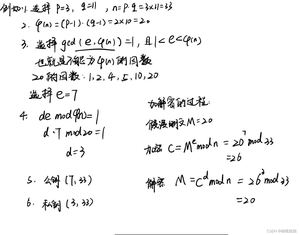 例如:1. 选择 p=3, q=11, n=p·q=3×11=33
2. φ(n)=(p-1)·(q-1)=2×10=20
3. 选择 gcd(e,φ(n))=1, 且1<e<φ(n)
也就是不能为φ(n)的因数
20的因数:1,2,4,5,10,20
选择 e=7
4. de mod φ(n)=1
d·7 mod 20=1
d=3
5. 公钥(7,33)
6. 私钥(3,33)
加解密的过程
假设明文M=20
加密 C=M^e mod n=20^7 mod 33
=26
解密 M=C^d mod n=26^3 mod 33
=20